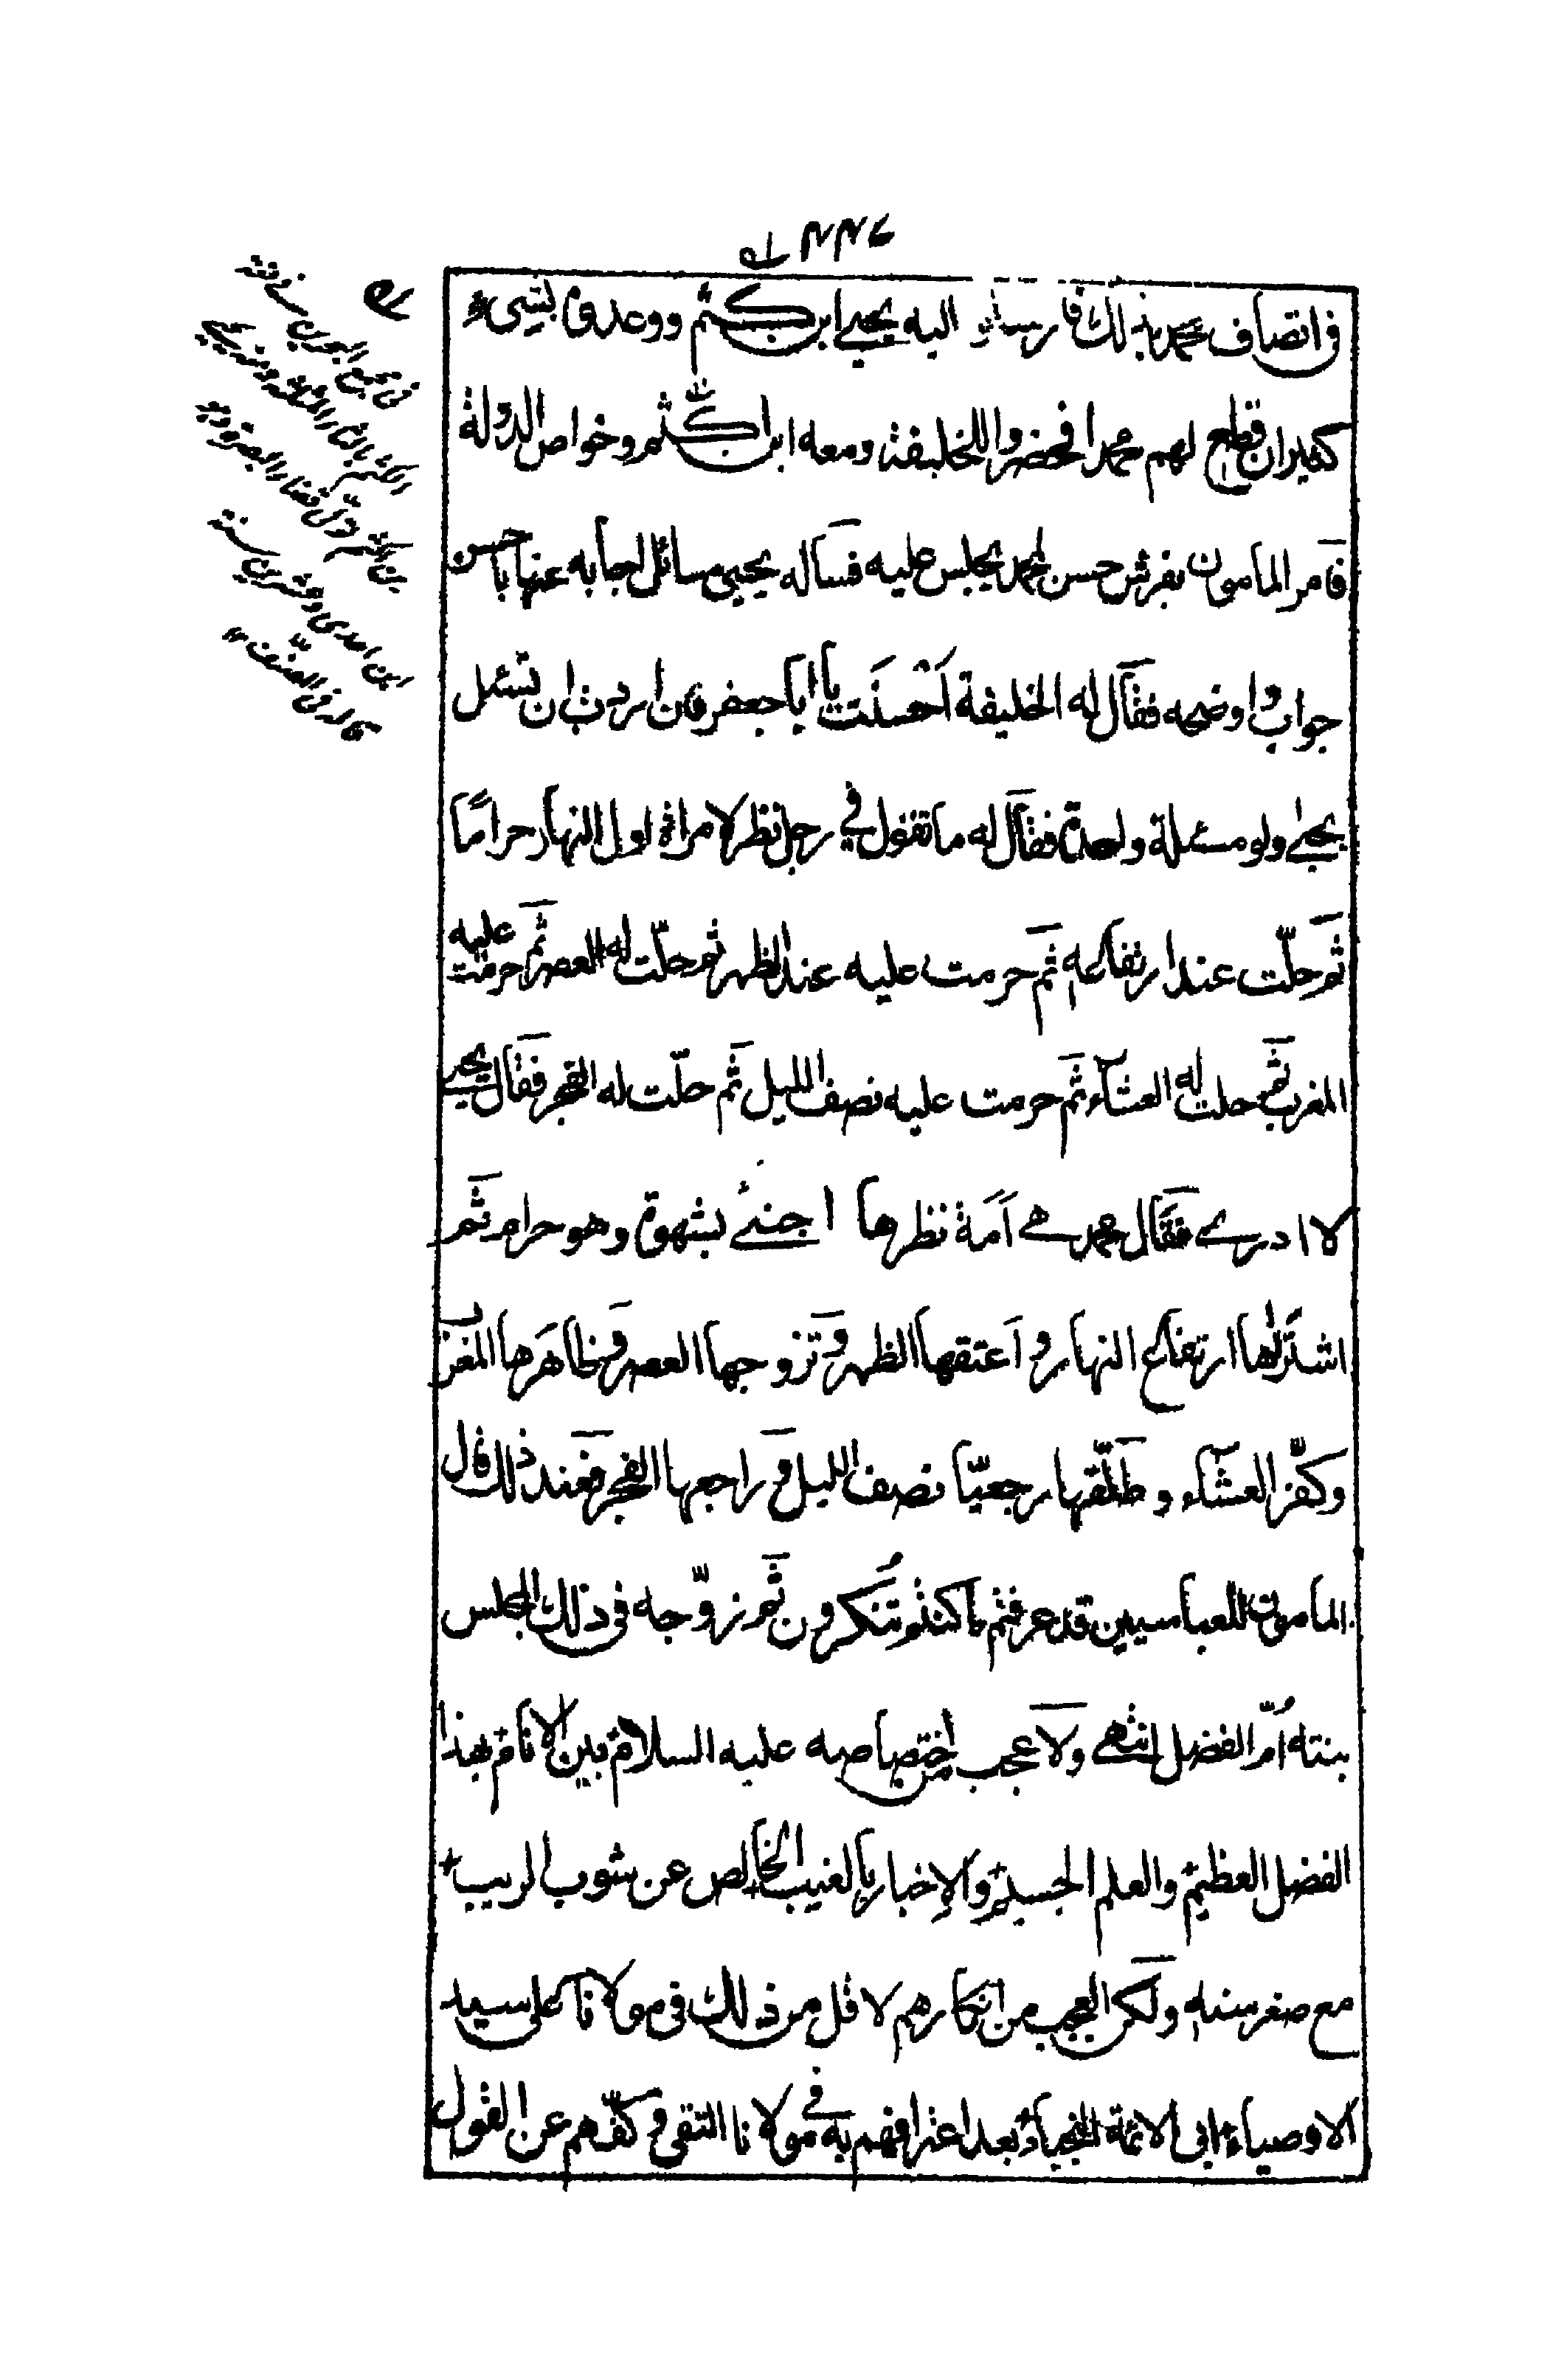 في اتصاف محمد بذلك فارسلو اليه يحيى ابن اكثم ووعدوه بشيىء
كثير ان قطع لهم محمدا فحضروا للخليفة ومعه ابن اكثم وخواص الدولة
فامر المامون بفرش حسن لمحمد يجلس عليه فساله يحيى مسائل اجابه عنها باحسن
جواب واوضحه فقال له الخليفة احسنت يا ابا جعفر فان اردت ان تسئل
يحيى ولو مسئلة واحدة فقال له ما تقول في رجل نظر لامراة اول النهار حرامًا
ثم حلّت عند ارتفاعه ثم حرمت عليه عند الظهر ثم حلّت له العصر ثم حرمت عليه
المغرب ثم حلت له العشاء ثم حرمت عليه نصف الليل ثم حلّت له الفجر فقال يحيى
لا ادرى فقال محمد هى اَمَة نظرها اجنبى بشهوة وهو حرام ثم
اشتراها ارتفاع النهار و اعتقها الظهر وتزوجها العصر وظاهرها المغرب
وكفّر العشآء و طلّقها رجعيّا نصف الليل و راجعها الفجر فعند ذلك قال
المامون للعباسيين قد عرفتم ما كنتم تنكرون ثم زوّجه فى ذلك المجلس
بنته اُمّ الفضل انتهى ولا عجب من اختصاصه عليه السلام بين الانام بهذا
الفضل العظيم والعلم الجسيم والاِخبار بالغيب الخالص عن شوب الريب
مع صغر سنه ولكن العجب من انكارهم لاقل من ذلك فى مولانا على سيد
الاوصياء ابى الائمة النجباء بعد اعترافهم به فى مولانا التقى و كفّهم عن القول
فى مجمع البحرين